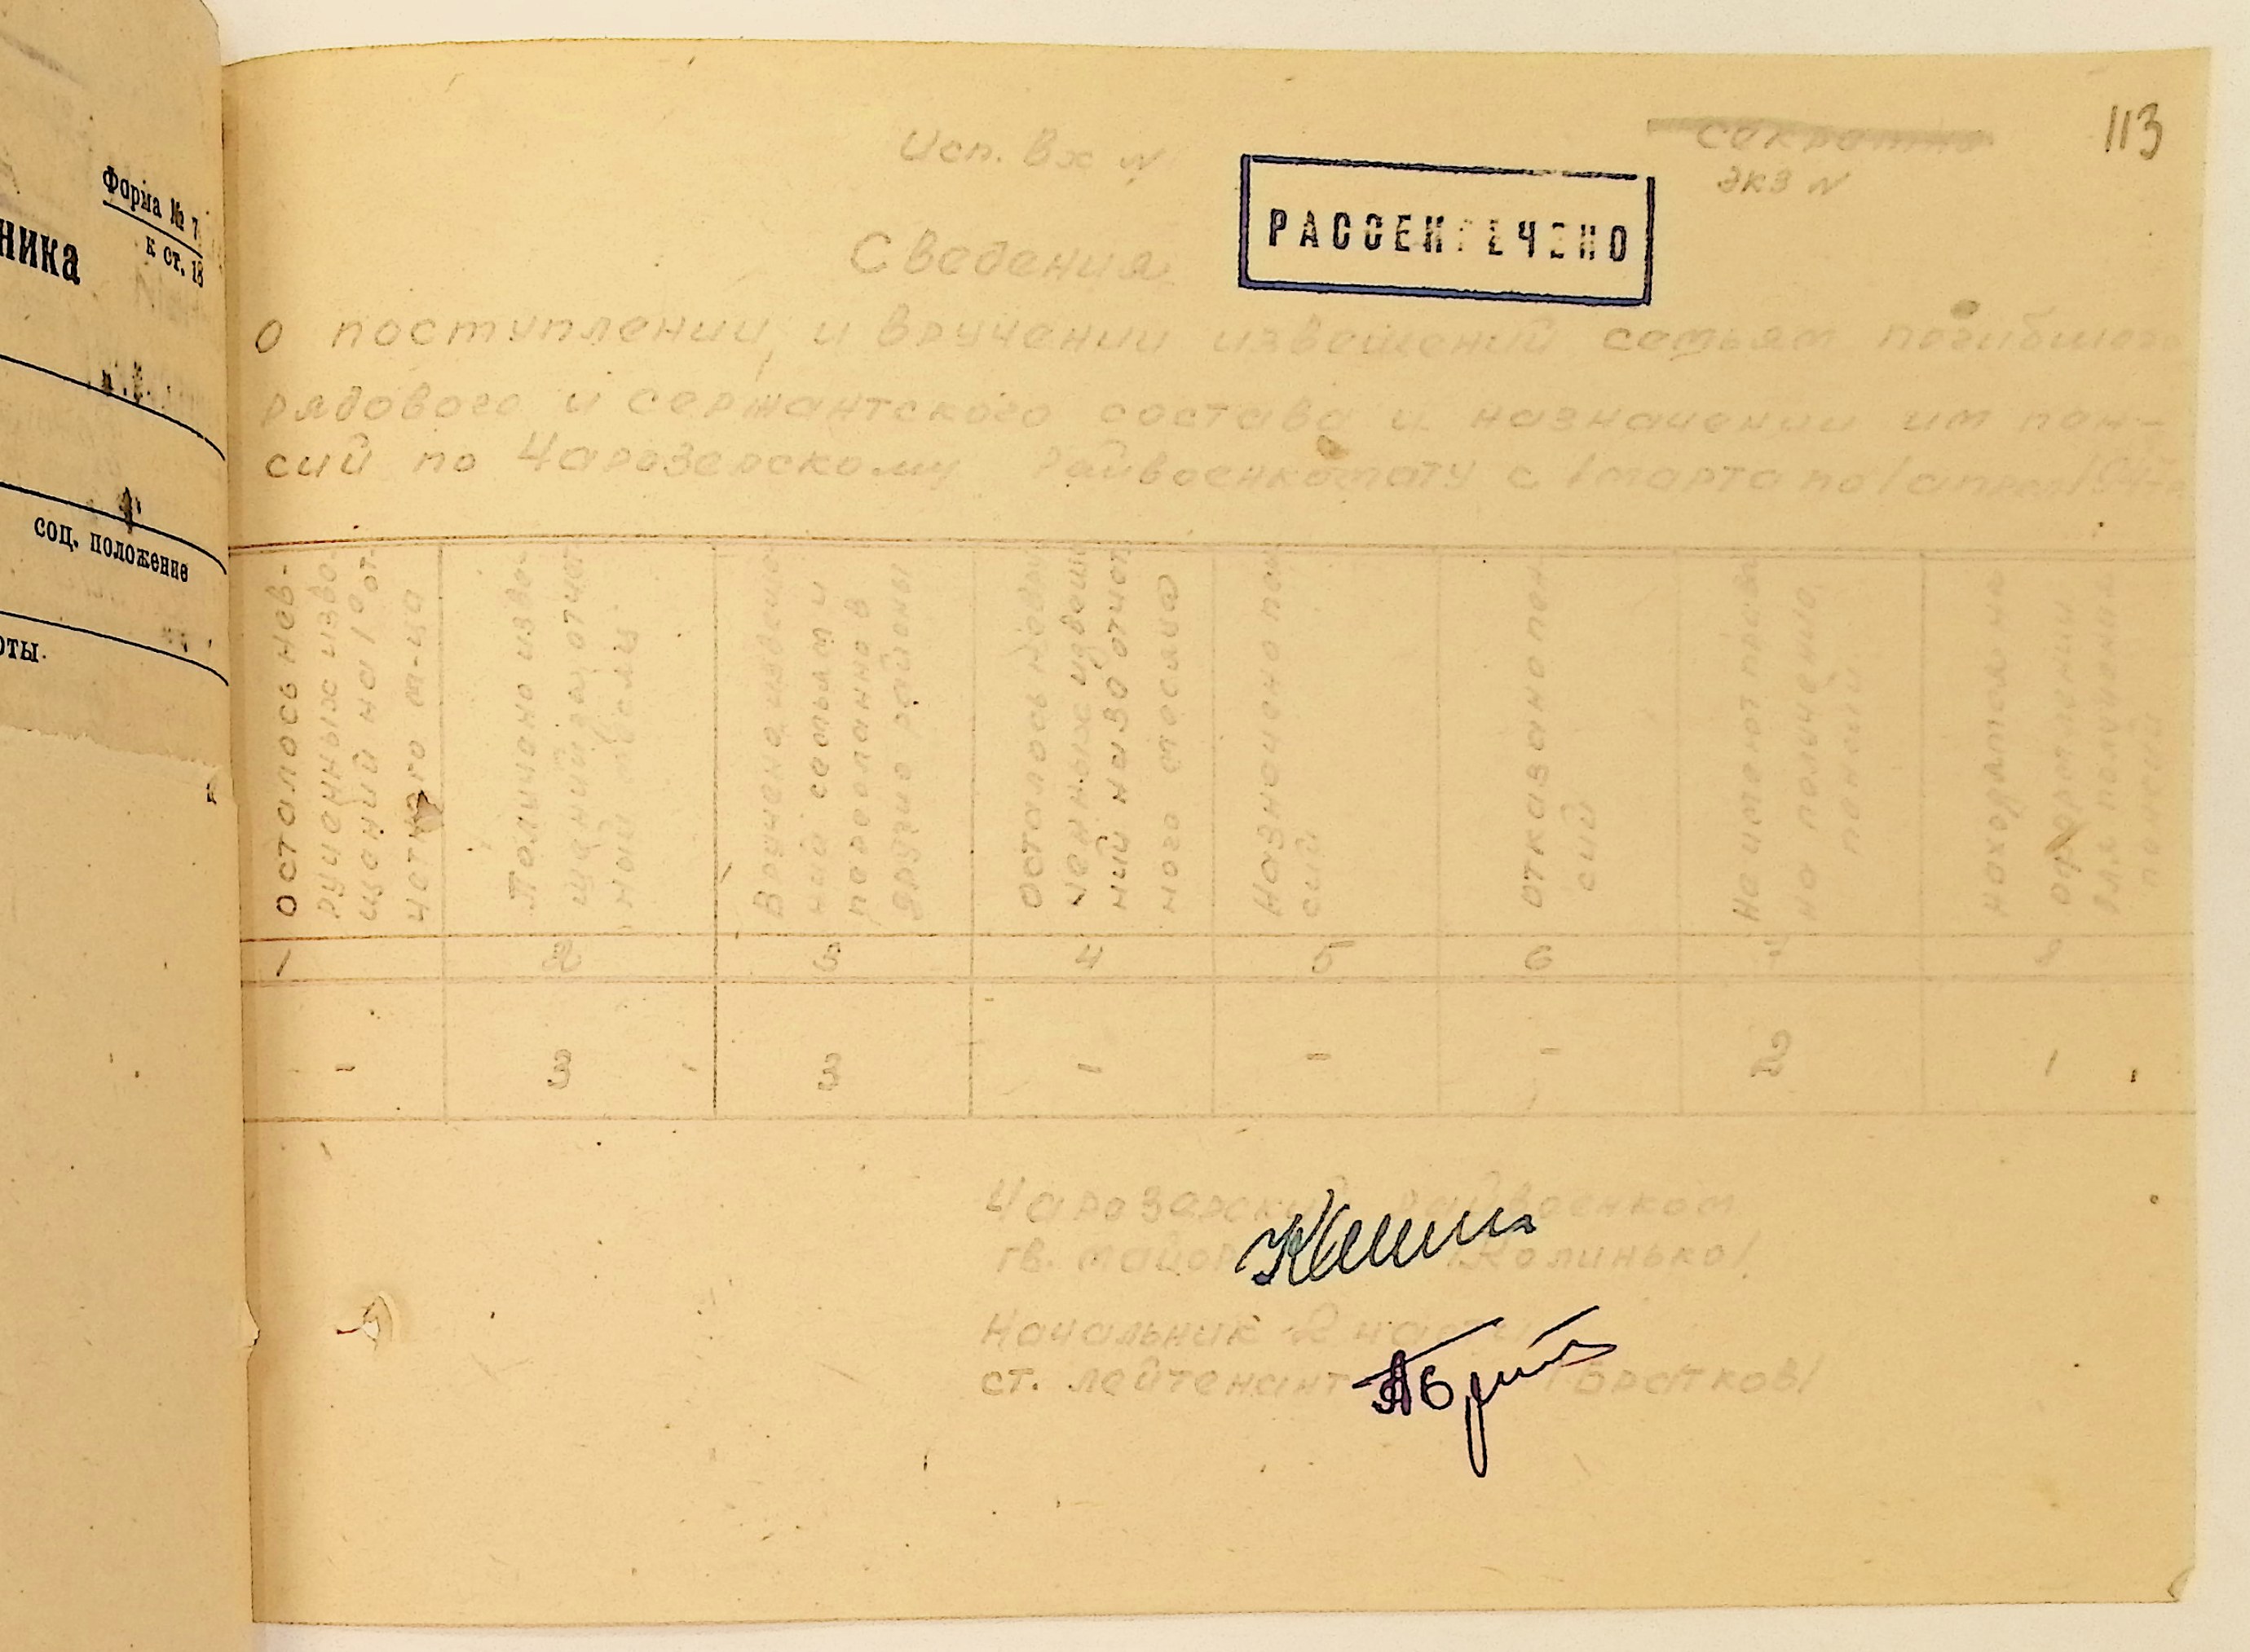 Форма № 7
к ст. 18
ника
соц. положение
оты.
113
Исп. Вх №
секретно
экз №
РАССЕКРЕЧЕНО
Сведения
о поступлении и вручении извещений семьям погибшего
рядового и сержантского состава и назначении им пен-
сий по Чарозерскому Райвоенкомату с 1 марта по 1 апреля
Осталось нев-
рученных изве-
щений на 1е от-
четного м-ца
Получено изве-
щений за отчет
ный месяц
Вручено извеще-
ний семьям и
переслано в
другие районы
Осталось невру
ченных извеще
ний на 30 отчет
ного месяца
Назначено пен
сий
отказано пен
сий
Не имеют права
на получение
пенсий
находятся на
оформлении
для получения
пенсий
1 2 3 4 5 6 7 8
- 3 3 1 - - 2 1
Чарозерский Райвоенком
гв. майор /Колинько/
Начальник 2 части
ст. лейтенант /Братков/